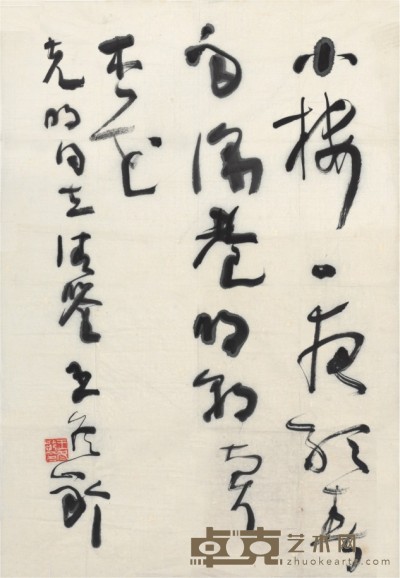 小楼一夜听春
雨深巷明朝卖
杏花
克明同志清鉴 王遐举
卓克艺术网
zhuokearts.com